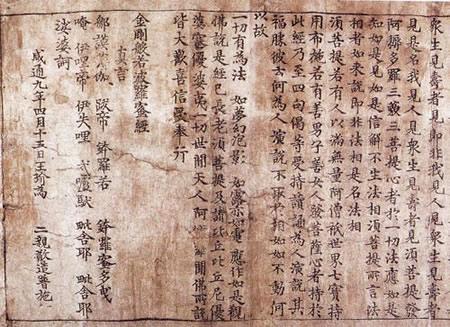 衆生見壽者見即非我見人見衆生見壽者
見是名我見人見衆生見壽者見須菩提發
阿耨多羅三藐三菩提心者於一切法應如是
知如是見如是信解不生法相須菩提所言法
相者如來說即非法相是名法相
須菩提若有人以滿無量阿僧祇世界七寶持
用布施若有善男子善女人發菩薩心者持於
此經乃至四句偈等受持讀誦為人演說其
福勝彼云何為人演說不取於相如如不動何
以故
一切有為法 如夢幻泡影 如露亦如電 應作如是觀
佛說是經已長老須菩提及諸比丘比丘尼優
婆塞優婆夷一切世間天人阿 聞佛所說
皆大歡喜信受奉行
金剛般若波羅蜜經
真言
那謨 伽 帝 鉢羅若 鉢羅蜜多曳
唵 伊哩帝 伊失哩 戍嚧馱 毗舍耶 毗舍耶
娑婆訶
咸通九年四月十五日王玠為 二親敬造普施